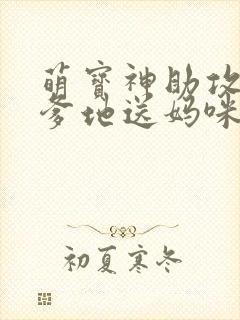 萌宝神助攻
爹地送妈咪
初夏寒冬